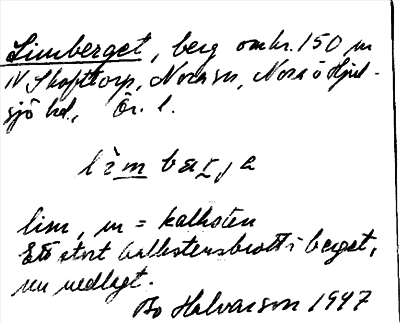 Limberget, berg omkr. 150 m
N Skofttorp, Nora sn, Nora o Hjul-
sjö hd, Ör. l.
lim, m = kalksten
Ett stort kalkstensbrott i berget,
nu nedlagt.
Bo Halvarson 1947